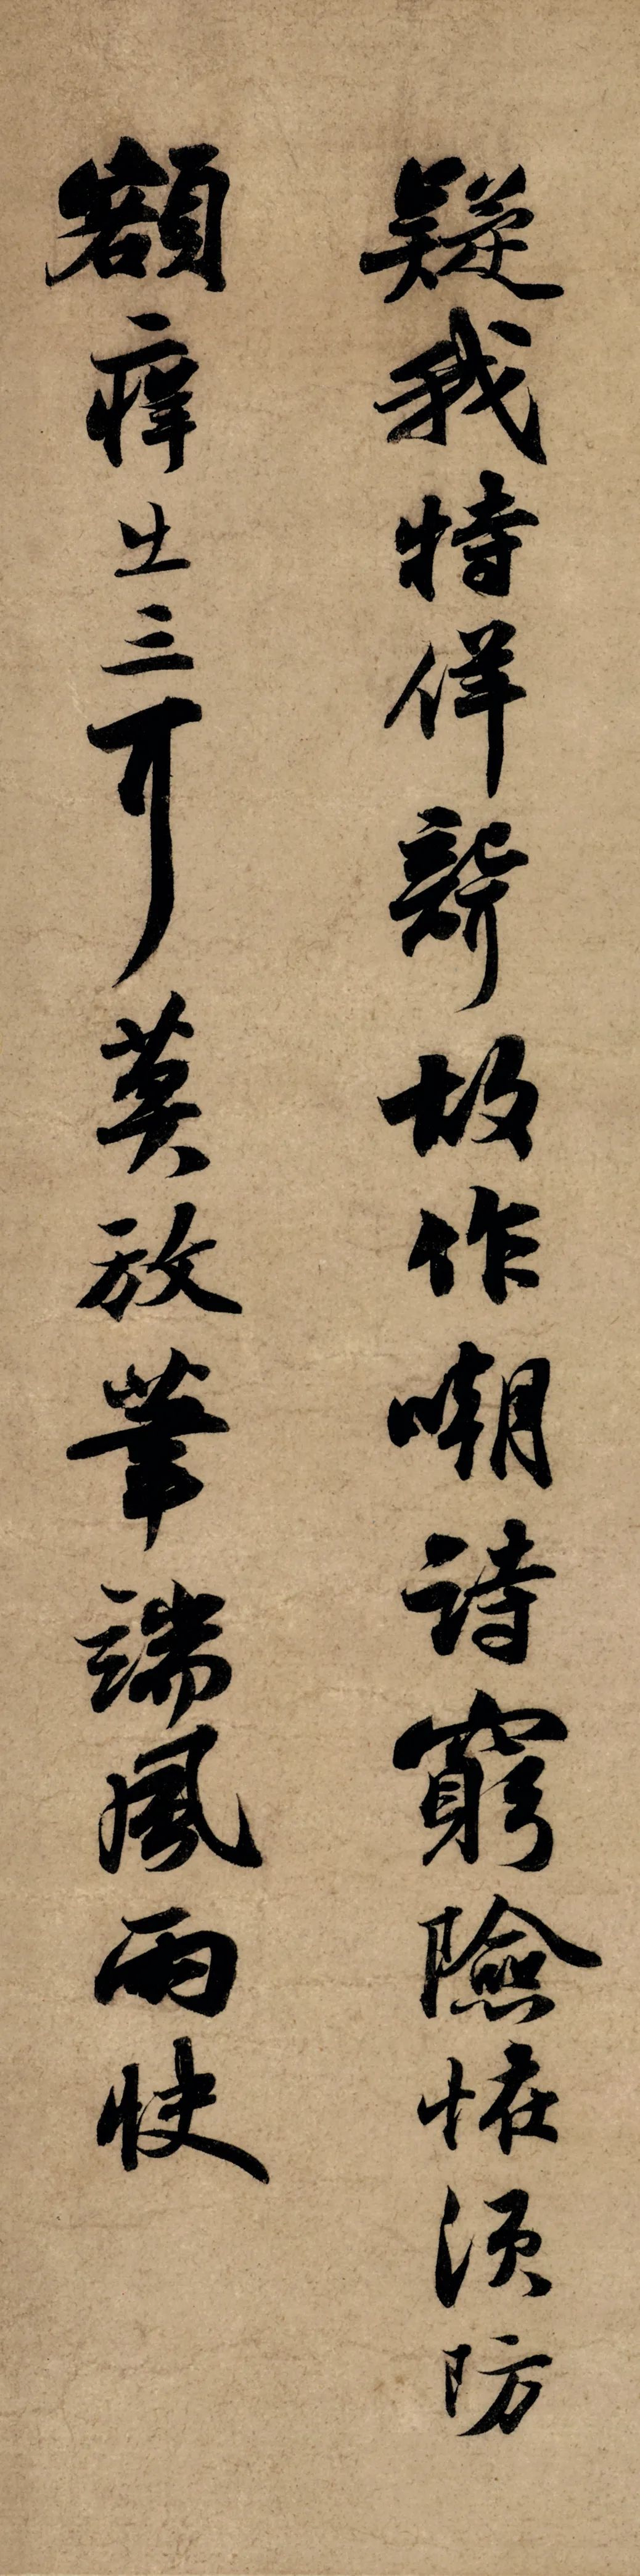 疑我特佯聾故作嘲詩窮險恠須防
額痒出三耳莫放筆端風雨快